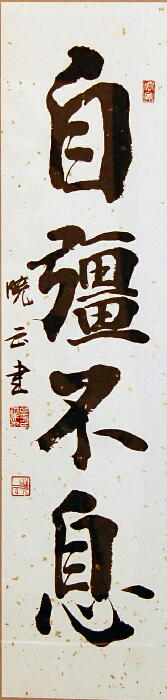 自彊不息
晓云書